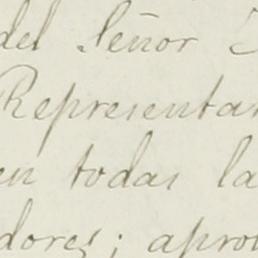 del Señor
Representan
en todas la
dores; apro